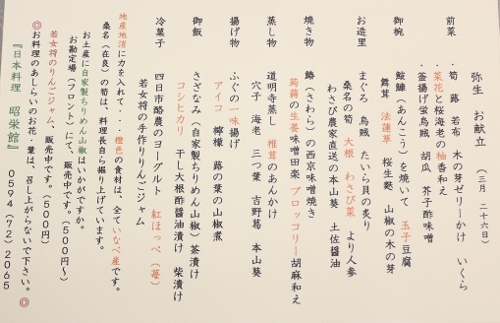 弥生 お献立 (三月 二十六日)
前菜 ・筍 蕗 若布 木の芽ゼリーかけ いくら
・菜花と桜海老の柚香和え
・釜揚げ蛍烏賊 胡瓜 芥子酢味噌
御椀 鮟鱇(あんこう)を焼いて 玉子豆腐
舞茸 法蓮草 桜生麩 山椒の木の芽
お造里 まぐろ 烏賊 たいら貝の炙り
桑名の筍 大根 わさび菜 より人参
わさび農家直送の本山葵 土佐醤油
焼き物 鰆(さわら)の西京味噌焼き
蒟蒻の生姜味噌田楽 ブロッコリー胡麻和え
蒸し物 道明寺蒸し 椎茸のあんかけ
穴子 海老 三つ葉 吉野葛 本山葵
揚げ物 ふぐの一味揚げ
アイコ 檸檬 蕗の葉の山椒煮
御飯 さざなみ(自家製ちりめん山椒)茶漬け
コシヒカリ 干し大根酢醤油漬け 柴漬け
冷菓子 四日市酪農のヨーグルト 紅ほっぺ(苺)
若女将の手作りりんごジャム
地産地消に力を入れて・・橙色の食材は、全ていなべ産です。
桑名(在良)の筍は、料理長自ら掘り上げています。
お土産に自家製ちりめん山椒はいかがですか。
お勘定場(フロント)にて、販売中です。(500円~)
若女将のりんごジャム、販売中です。(500円)
◎お料理のあしらいのお花・葉は、召し上がらないで下さい。◎
『日本料理 昭栄館』 0594(72)2065